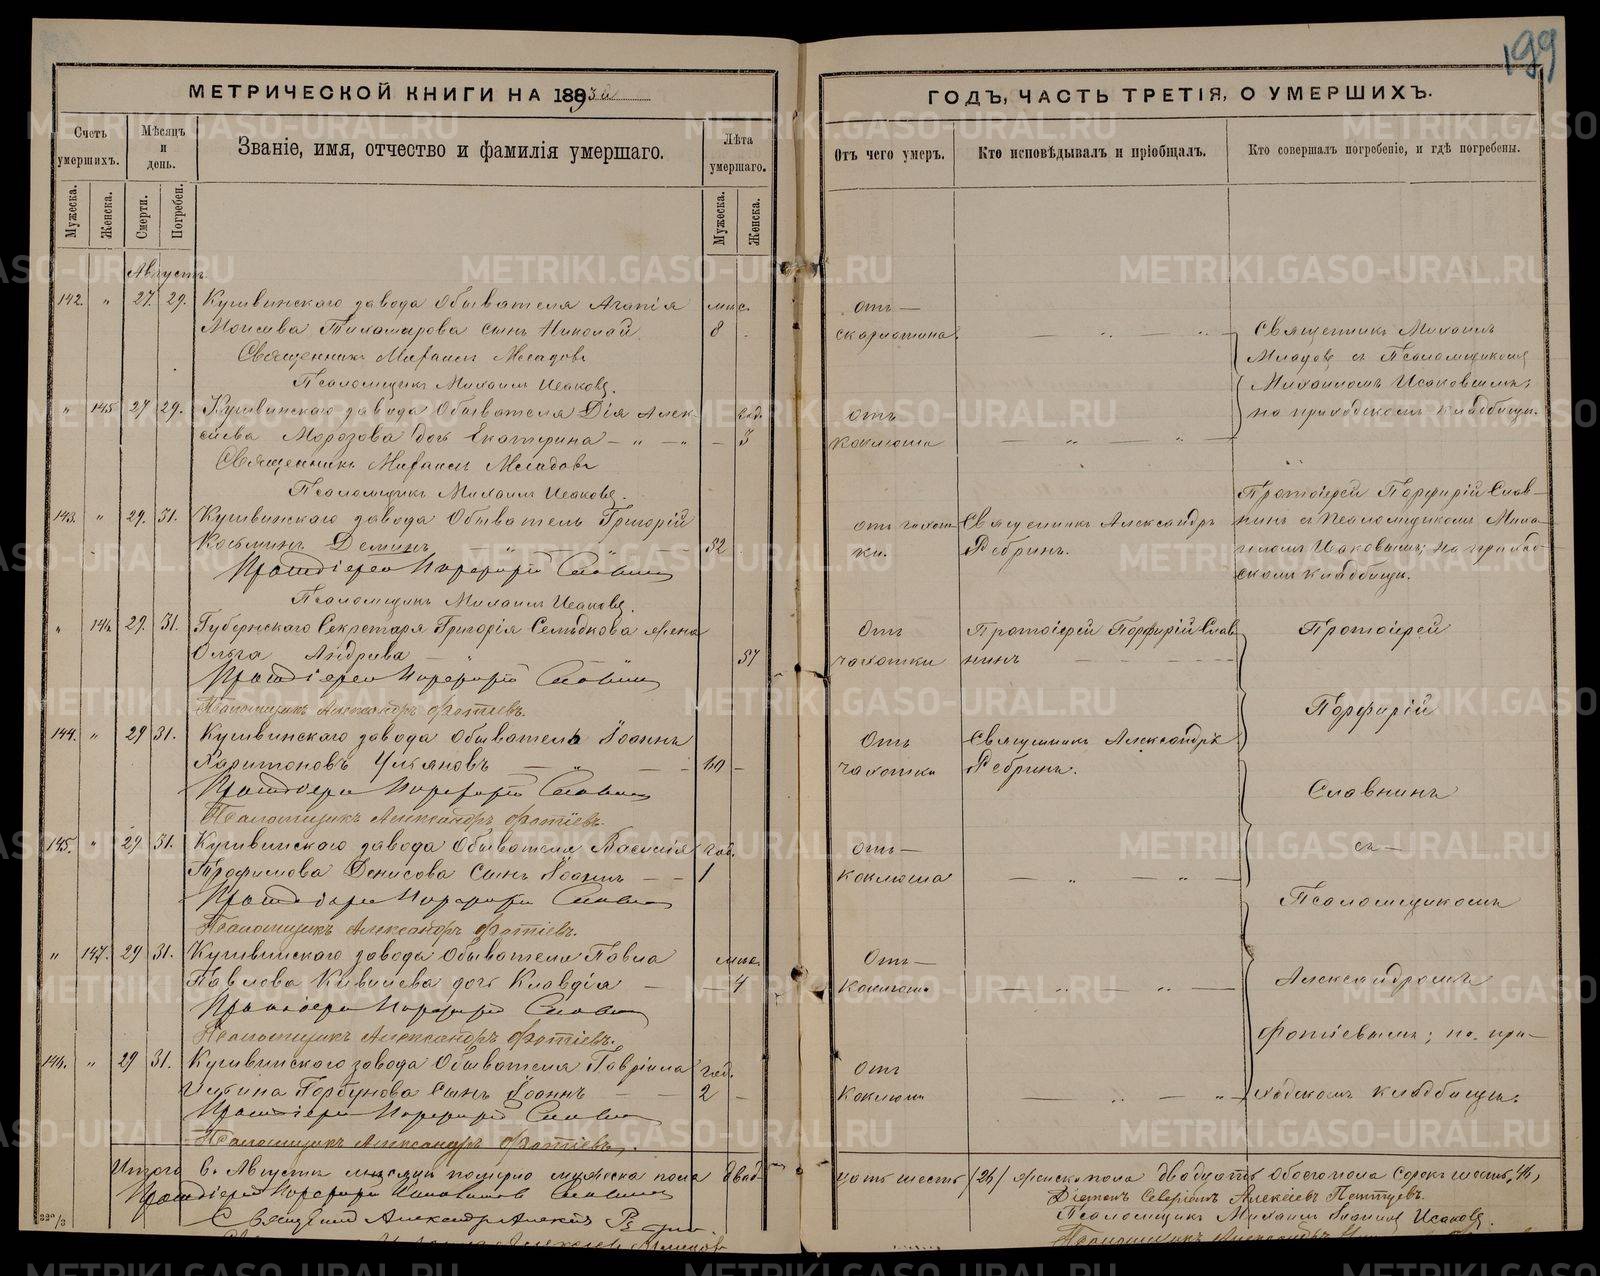 199
МЕТРИЧЕСКОЙ КНИГИ НА 1893й
ГОДЪ, ЧАСТЬ ТРЕТІЯ, О УМЕРШИХЪ.
Счетъ умершихъ.
Мѣсяцъ и день.
Званіе, имя, отчество и фамилія умершаго.
Лѣта умершаго.
Отъ чего умеръ.
Кто исповѣдывалъ и пріобщалъ.
Кто совершалъ погребеніе, и гдѣ погребены.
Мужеска.
Женска.
Смерти.
Погребен.
Мужеска.
Женска.
Августъ.
142. " 27. 29. Кушвинскаго завода Обывателя Агапія мѣс. Отъ
Моисеева сынъ Николай 8 скарлатина.
Священникъ Михаилъ Младовъ
Псаломщикъ Михаилъ Исаковъ.
Священникъ Михаилъ
Младовъ съ Псаломщикомъ
Михаиломъ Исаковымъ;
на приходскомъ кладбищѣ.
" 145 27 29. Кушвинскаго завода Обывателя Алек- год. отъ
сѣева Морозова дочь Екатерина 3 коклюша
Священникъ Михаилъ Младовъ
Псаломщикъ Михаилъ Исаковъ.
143. " 29. 31. Кушвинскаго завода Обыватель Григорій отъ чахот- Священникъ Александръ
Косьминъ Деминъ 52 ки. Ребринъ.
Протоіерей Порфирій Славнинъ
Псаломщикъ Михаилъ Исаковъ.
Протоіерей Порфирій Слав-
нинъ съ Псаломщикомъ Миха-
иломъ Исаковымъ; на приход-
скомъ кладбищѣ.
" 146 29. 31. Губернскаго Секретаря Григорія жена Отъ Протоіерей Порфирій Слав-
Ольга 57 чахотки нинъ
Протоіерей Порфирій Славнинъ
Псаломщикъ Александръ Фотіевъ.
144. " 29 31. Кушвинскаго завода Обыватель Іоаннъ Отъ Священникъ Александръ
Харитоновъ Ульяновъ 60 чахотки Ребринъ.
Протоіерей Порфирій Славнинъ
Псаломщикъ Александръ Фотіевъ.
145. " 29 31. Кушвинскаго завода Обывателя Василія год. отъ
Трофимова Денисова сынъ Іоаннъ 1 коклюша
Протоіерей Порфирій Славнинъ
Псаломщикъ Александръ Фотіевъ.
" 147. 29 31. Кушвинскаго завода Обывателя Павла мѣс. Отъ
Павлова дочь Клавдія 4 коклюша
Протоіерей Порфирій Славнинъ
Псаломщикъ Александръ Фотіевъ.
146. " 29 31. Кушвинскаго завода Обывателя Гавріила год. отъ
Горбунова сынъ Іоаннъ 2 коклюша
Протоіерей Порфирій Славнинъ
Псаломщикъ Александръ Фотіевъ.
Протоіерей
Порфирій
Славнинъ
съ
Псаломщикомъ
Александромъ
Фотіевымъ; на при-
ходскомъ кладбищѣ.
Итого въ Августѣ мѣсяцѣ померло мужеска пола двад-
цать шесть /26/ женска пола двадцать Обоего пола сорокъ шесть, 46,
Протоіерей Порфирій Славнинъ
Діаконъ Алексіевъ
Священникъ Александръ
Псаломщикъ Михаилъ Исаковъ.
METRIKI.GASO-URAL.RU